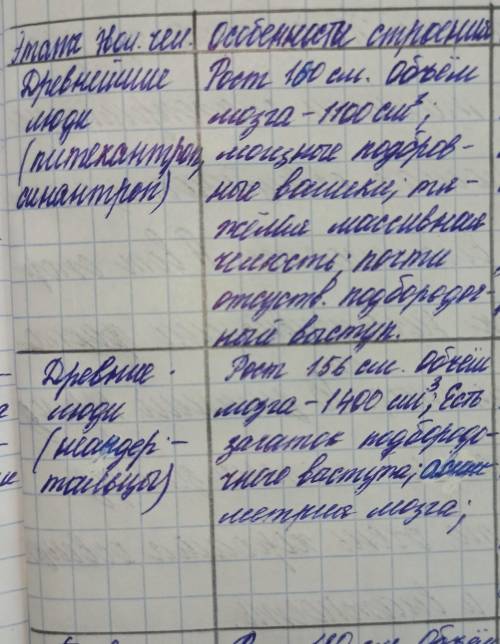 Этапы Эвол. чел. Особенности строения
Древнейшие
люди
(питекантроп,
синантроп)
Рост 160 см. Объём
мозга - 1100 см³;
мощные надбров-
ные валики; тя-
жёлая массивная
челюсть; почти
отсуств. подбородоч-
ный выступ.
Древние
люди
(неандер-
тальцы)
Рост 156 см. Объём
мозга - 1400 см³; Есть
зачаток подбородо-
чного выступа; асим-
метрия мозга;